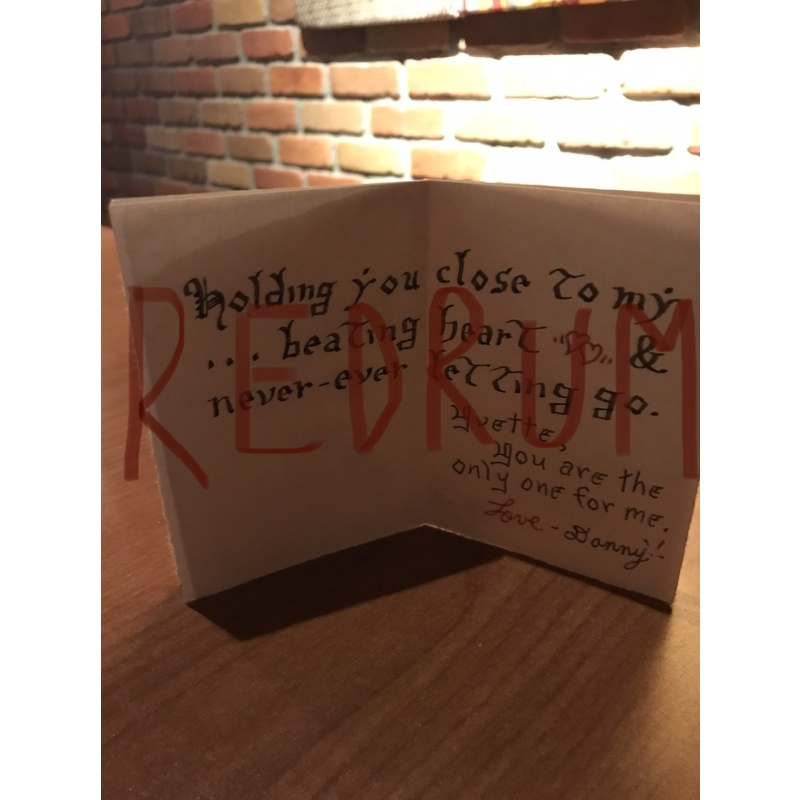 Holding you close to my
... beating heart &
never-ever letting go.
REDRUM
Yvette,
You are the
only one for me.
Love - Danny!!